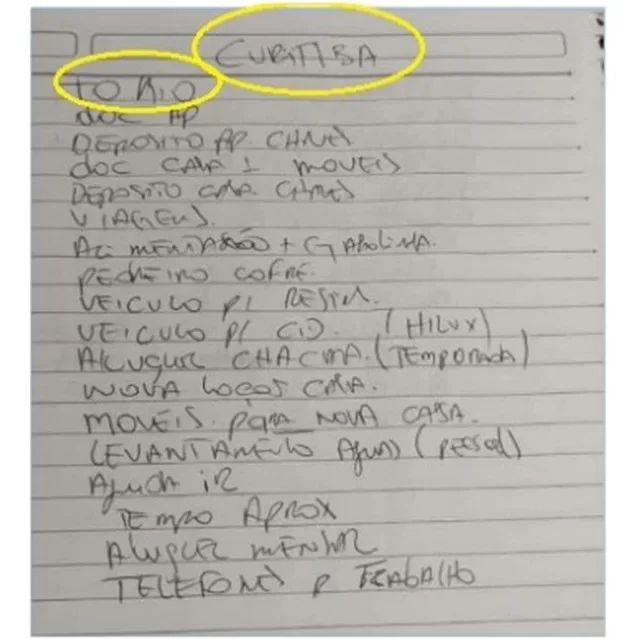 CURITIBA
TOKIO
DOC AP
DEPOSITO AP. CHAVES
DOC CASA 1 MOVEIS
DEPOSITO CASA CHAVES
VIAGENS.
ALIMENTAÇÃO + GASOLINA.
PEDREIRO COFRE.
VEICULO P/
VEICULO P/ CD. (HILUX)
ALUGUEL CHACARA. (TEMPORADA)
NOVA CASA.
MOVEIS. PARA NOVA CASA.
LEVANTAMENTO (PESSOAL)
AJUDA IR
TEMPO APROX
ALUGUEL MENSAL
TELEFONES P TRABALHO